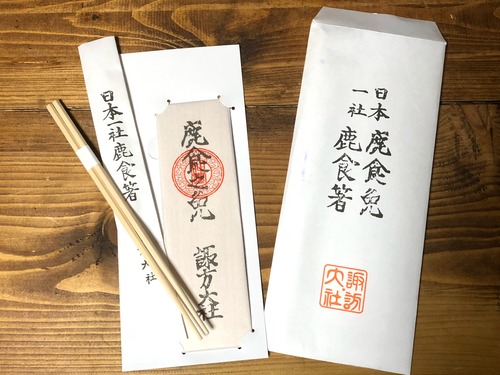 日本一社鹿食箸
大社
鹿食之免
諏方大社
日本
一社
鹿食免
鹿食箸
諏訪
大社